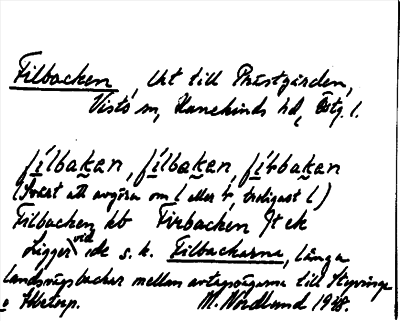 Filbacken, Lht till Prästgården,
Vists sn, Hanekinds hd, Östg. l.
fi̱lbaḵan, fi̱lbaḵan, fi̱rbaḵan
(Svårt att avgöra om l eller r, troligast l)
Filbacken hb Firbacken Jt ek
Ligger vid de s. k. Filbackarna, långa
landsvägsbackar mellan avtagsvägarna till Styvinge
o Skeorp.
M. Nordlund 1948.